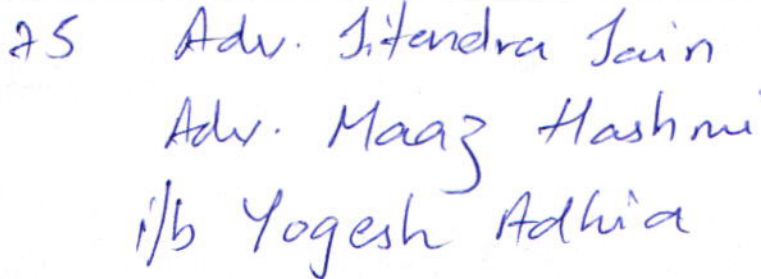 75 Adv. Jitendra Jain
Adv. Maaz Hashmi
i/b Yogesh Adhia